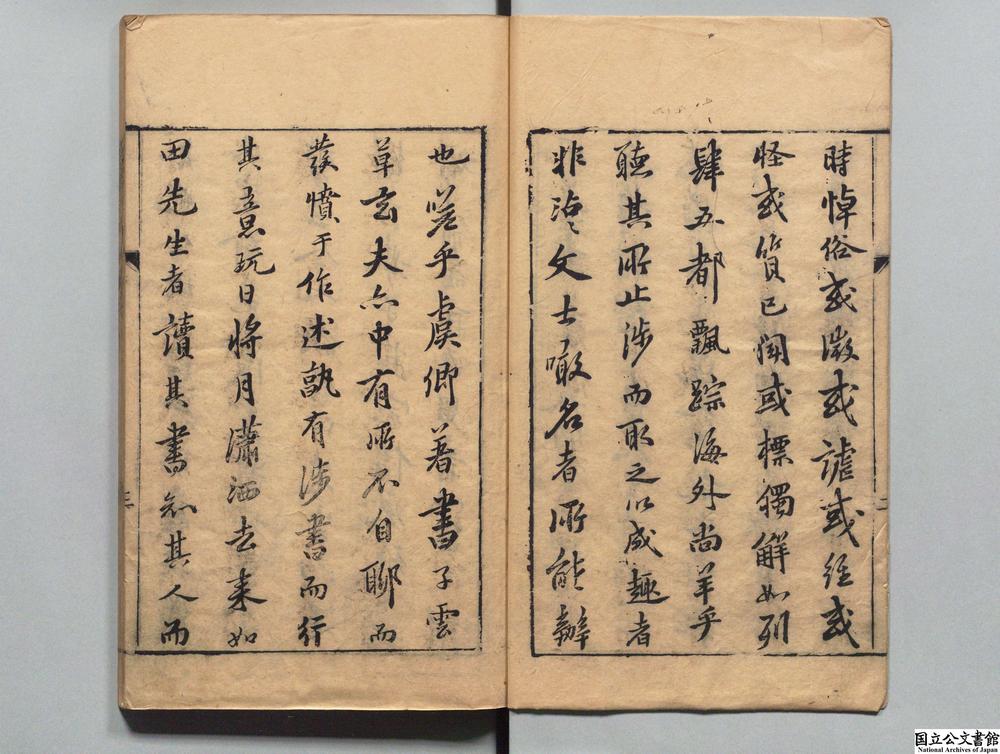 時悼俗或激或謔或經或
怪或質已聞或標獨解如列
肆五都飄踪海外尚羊乎
聽其所止涉而取之以成趣者
非沾沾文士噉名者所能辦
也嗟乎虞卿著書子雲
草玄夫亦中有所不自聊而
發憤于作述孰有涉書而行
其意玩日將月瀟洒去來如
田先生者讀其書知其人而
二
三
国立公文書館
National Archives of Japan